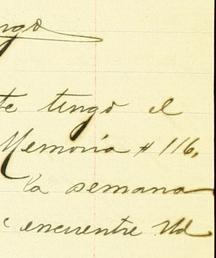 te tengo el
Memoria # 116,
la semana
encuentre Ud